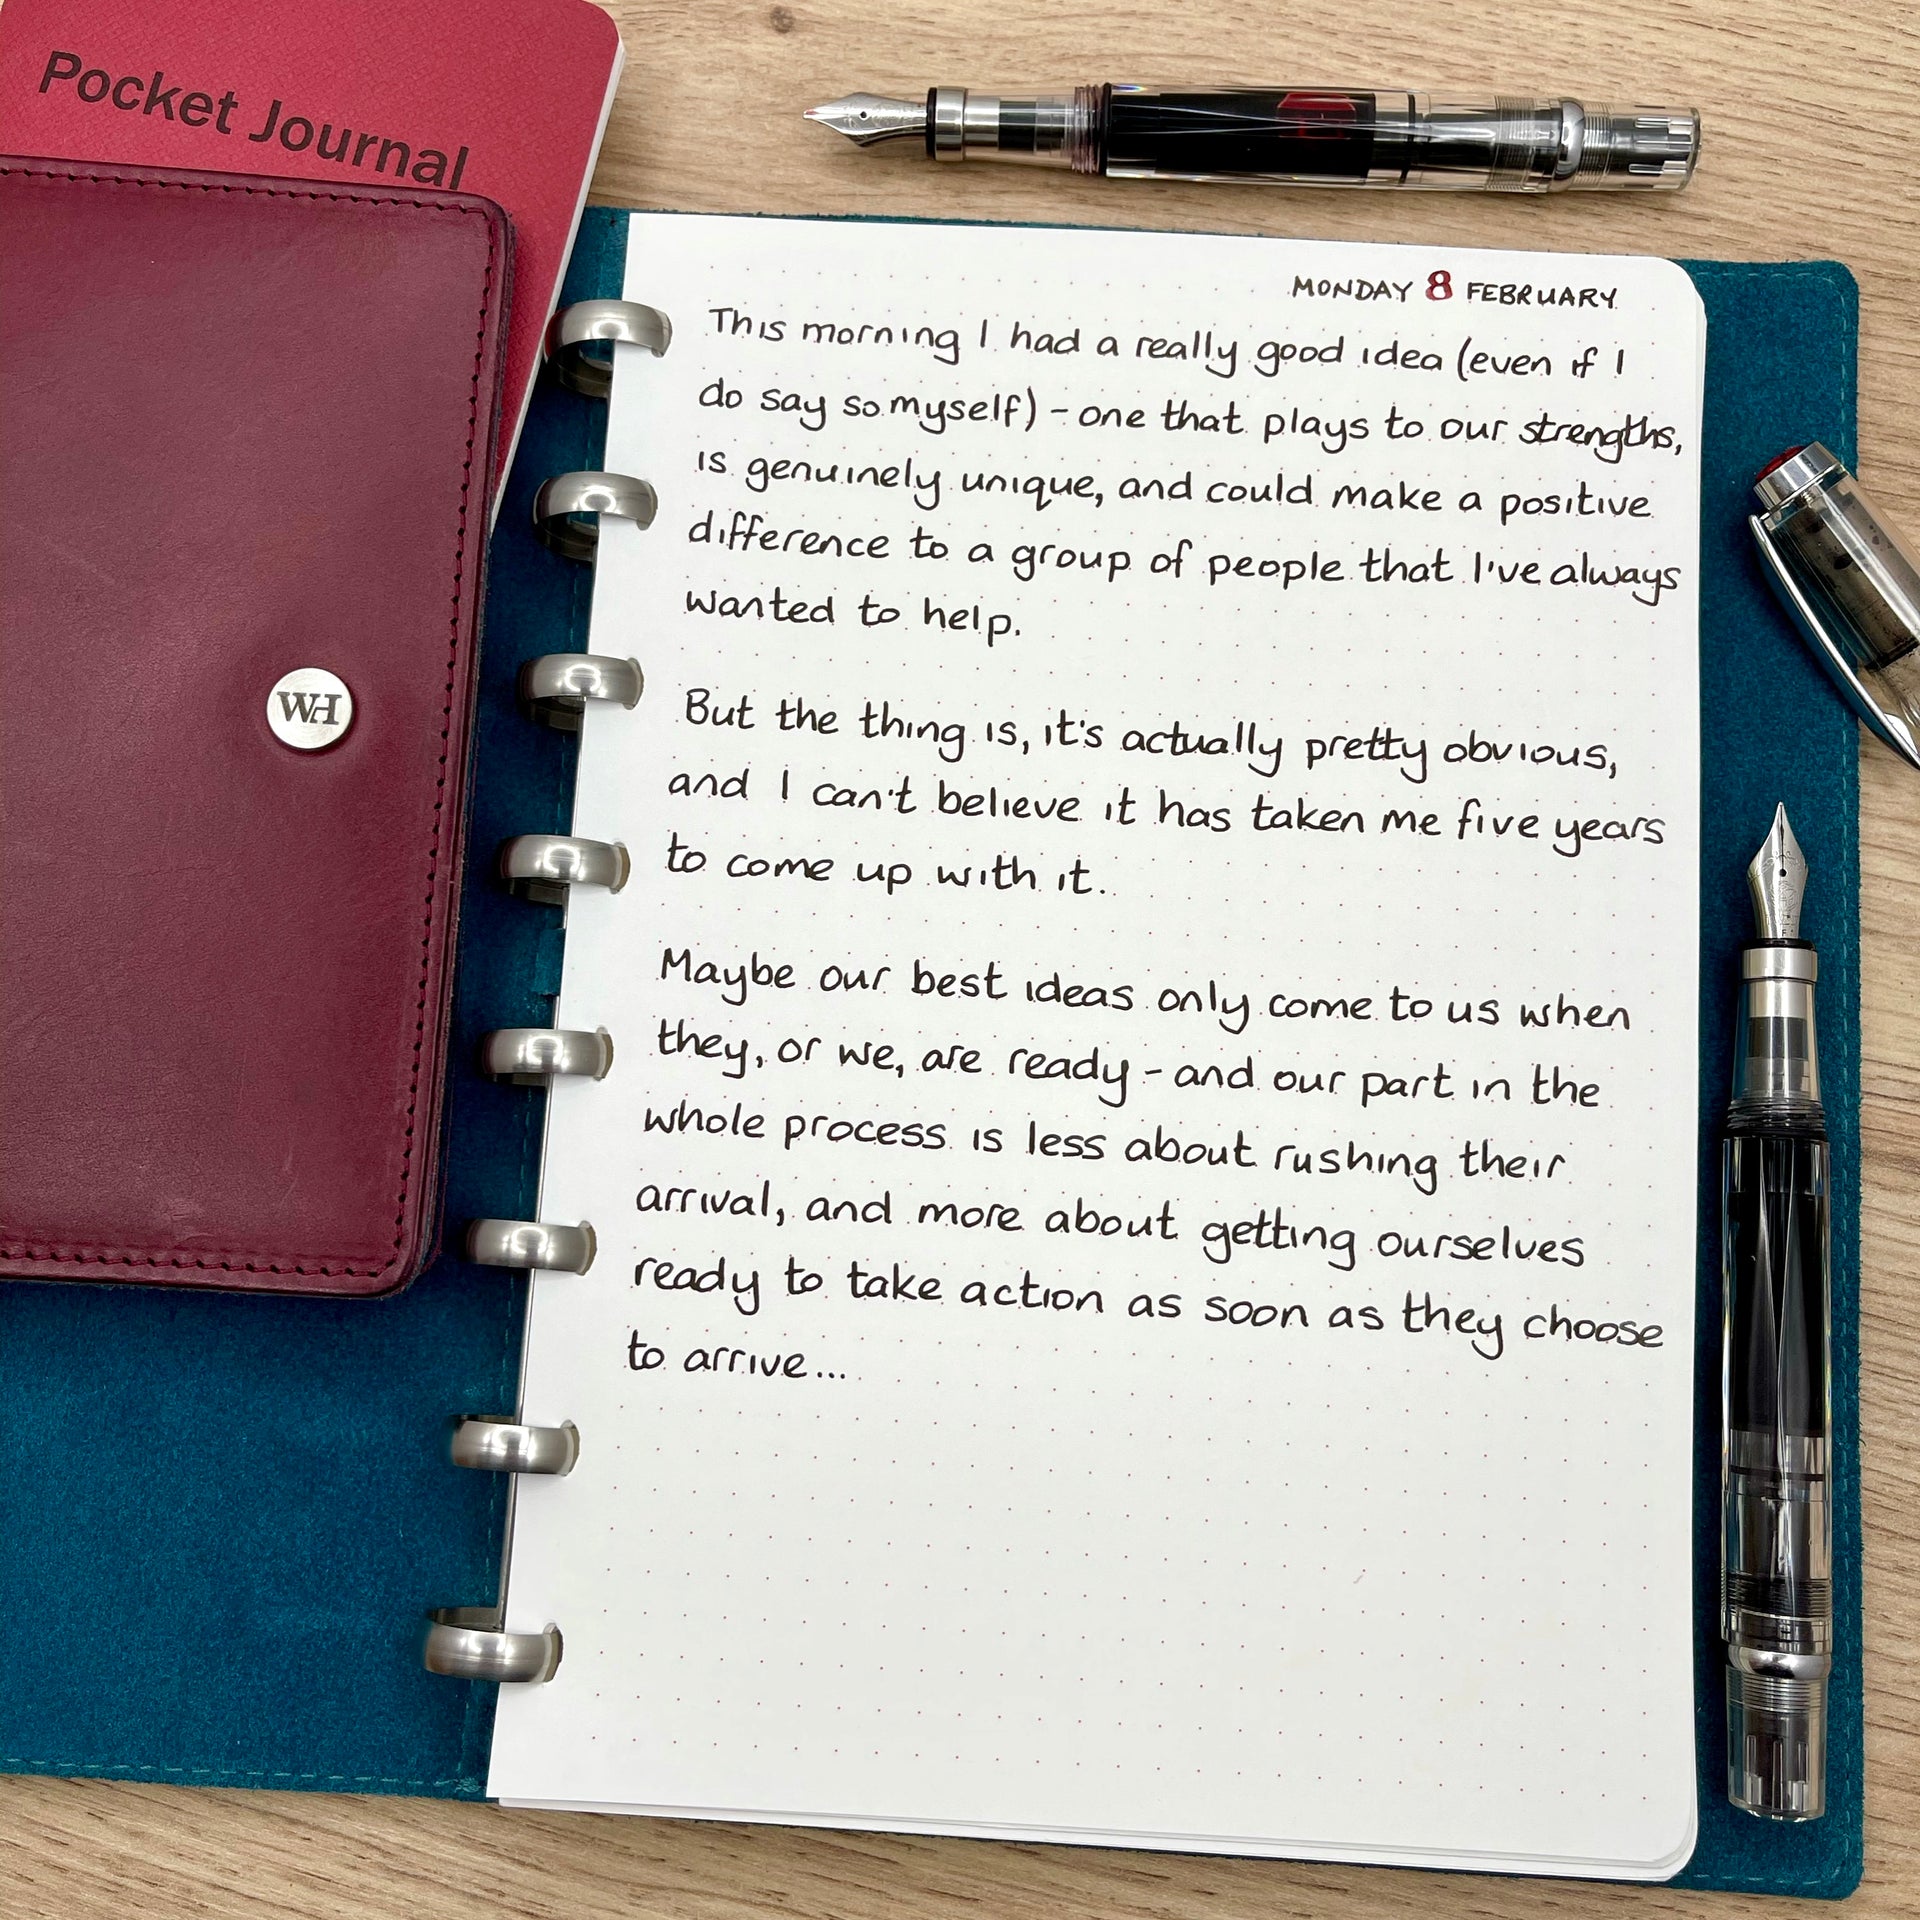 Pocket Journal
WH
MONDAY 8 FEBRUARY
This morning I had a really good idea (even if I
do say so myself) - one that plays to our strengths,
is genuinely unique, and could make a positive
difference to a group of people that I've always
wanted to help.
But the thing is, it's actually pretty obvious,
and I can't believe it has taken me five years
to come up with it.
Maybe our best ideas only come to us when
they, or we, are ready - and our part in the
whole process is less about rushing their
arrival, and more about getting ourselves
ready to take action as soon as they choose
to arrive...